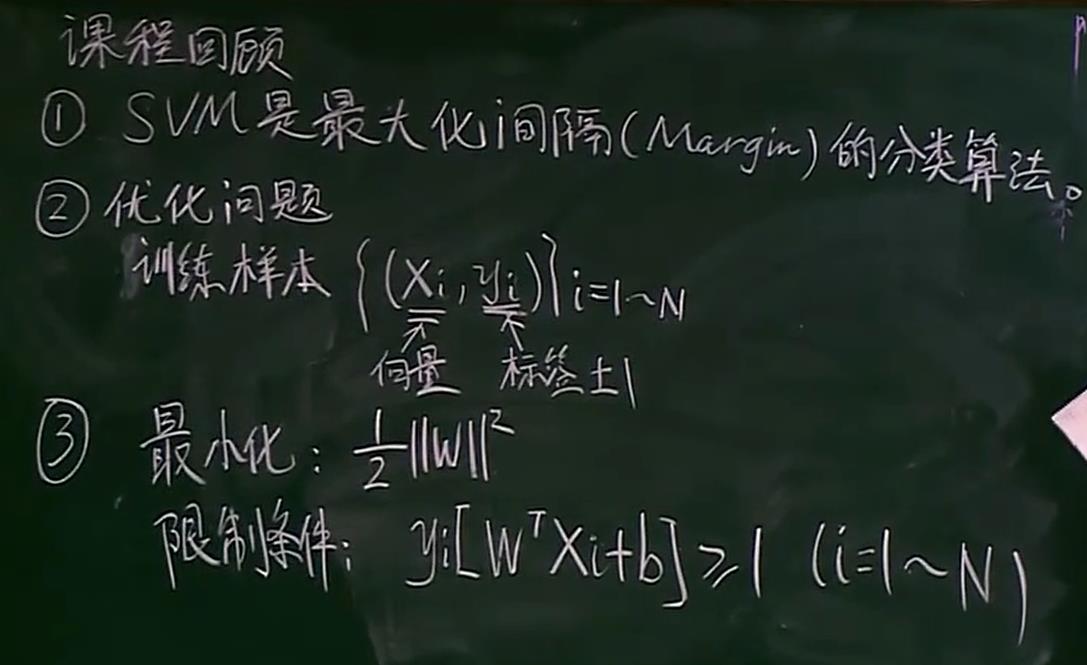 课程回顾
① SVM是最大化间隔(Margin)的分类算法。
② 优化问题
训练样本 {(Xi,yi)}i=1~N
向量 标签±1
③ 最小化: 1/2||W||²
限制条件: yi[WᵀXi+b]≥1 (i=1~N)